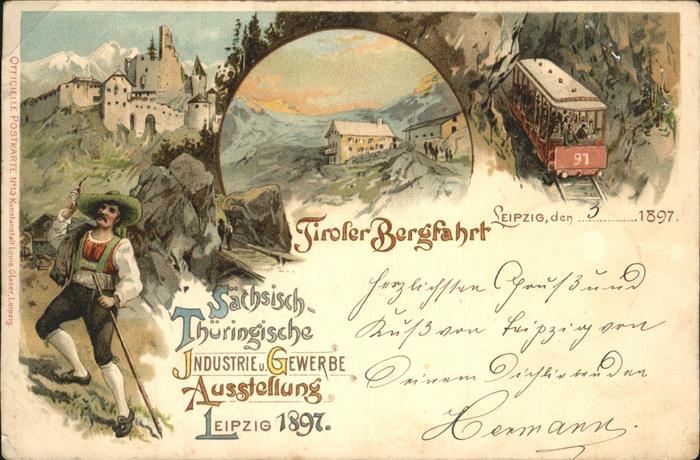 OFFICIELLE POSTKARTE Nº 13 Kunstanstalt Louis Glaser, Leipzig.
91
Tiroler Bergfahrt
LEIPZIG, den 3 1897.
Sächsisch-
Thüringische
INDUSTRIE u. GEWERBE
Ausstellung
LEIPZIG 1897.
Herzlichsten Gruß und
Kuß von Leipzig von
Deinem Dichliebenden
Hermann.